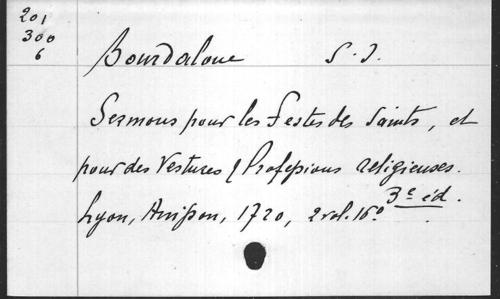 201
300
6
Bourdaloue S. J.
Sermons pour les Festes des Saints, et
pour des Vestures & Professions religieuses.
Lyon, Anisson, 1720, 2 vol. 16º 3e éd.